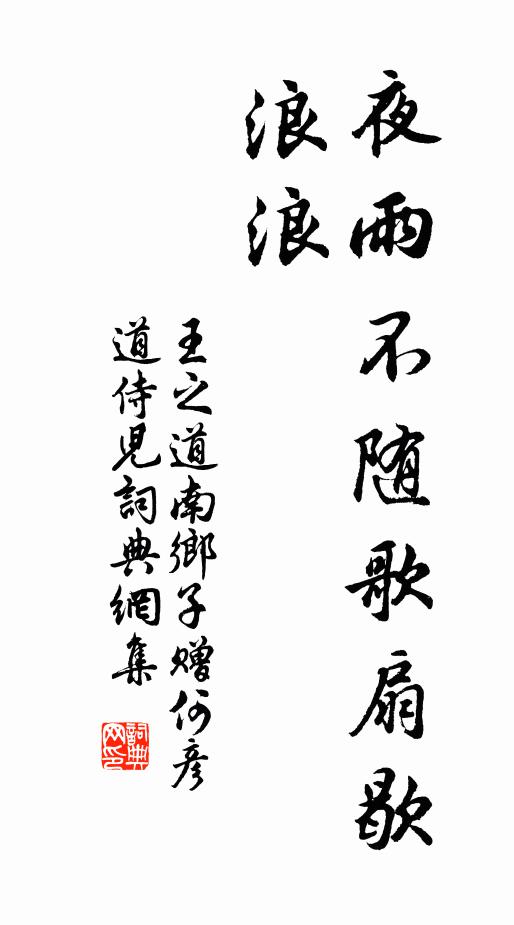 夜雨不随歌扇歇
浪浪
王之道南鄉子赠何彦
道侍児詞典網集
詞典
网印